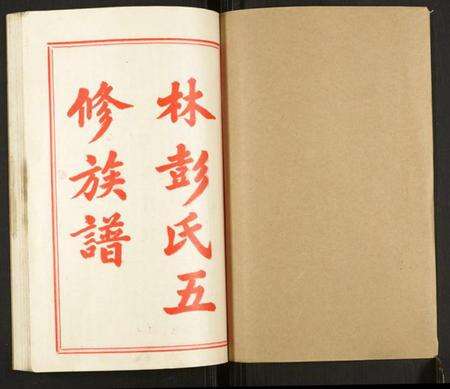 林彭氏五
修族譜